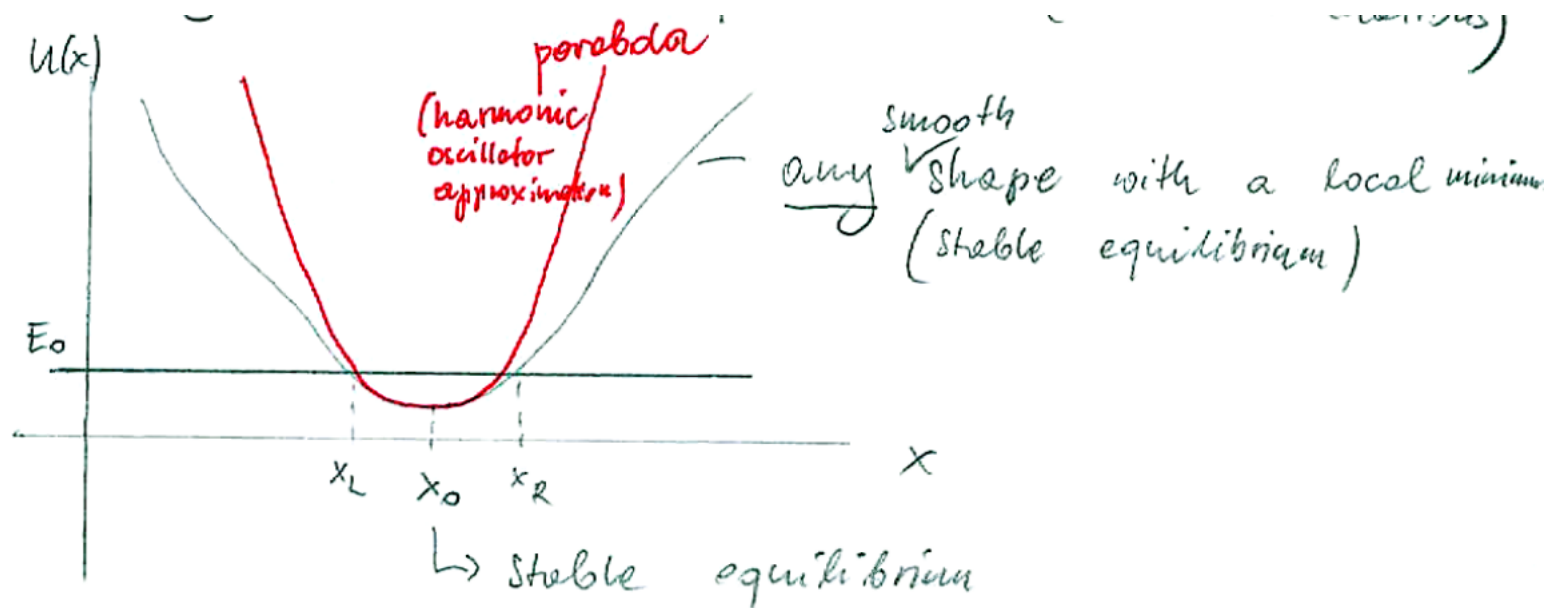 U(x)
parabola
(harmonic
oscillator
approximation)
smooth
any shape with a local minimum
(stable equilibrium)
E₀
x_L x₀ x_R
x
↳ stable equilibrium